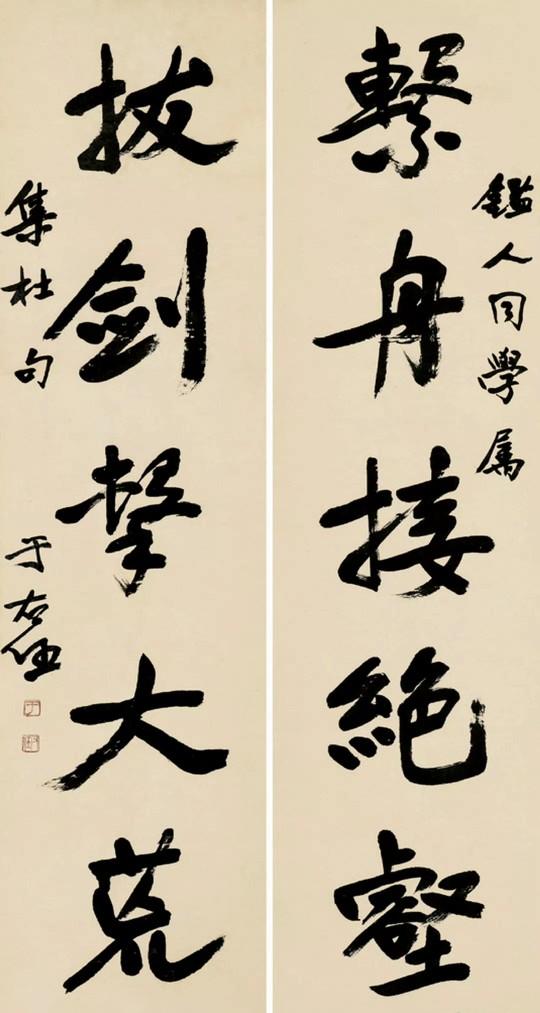 鑑人同學属
繫舟接絶壑
拔劍擊大荒
集杜句
于右任